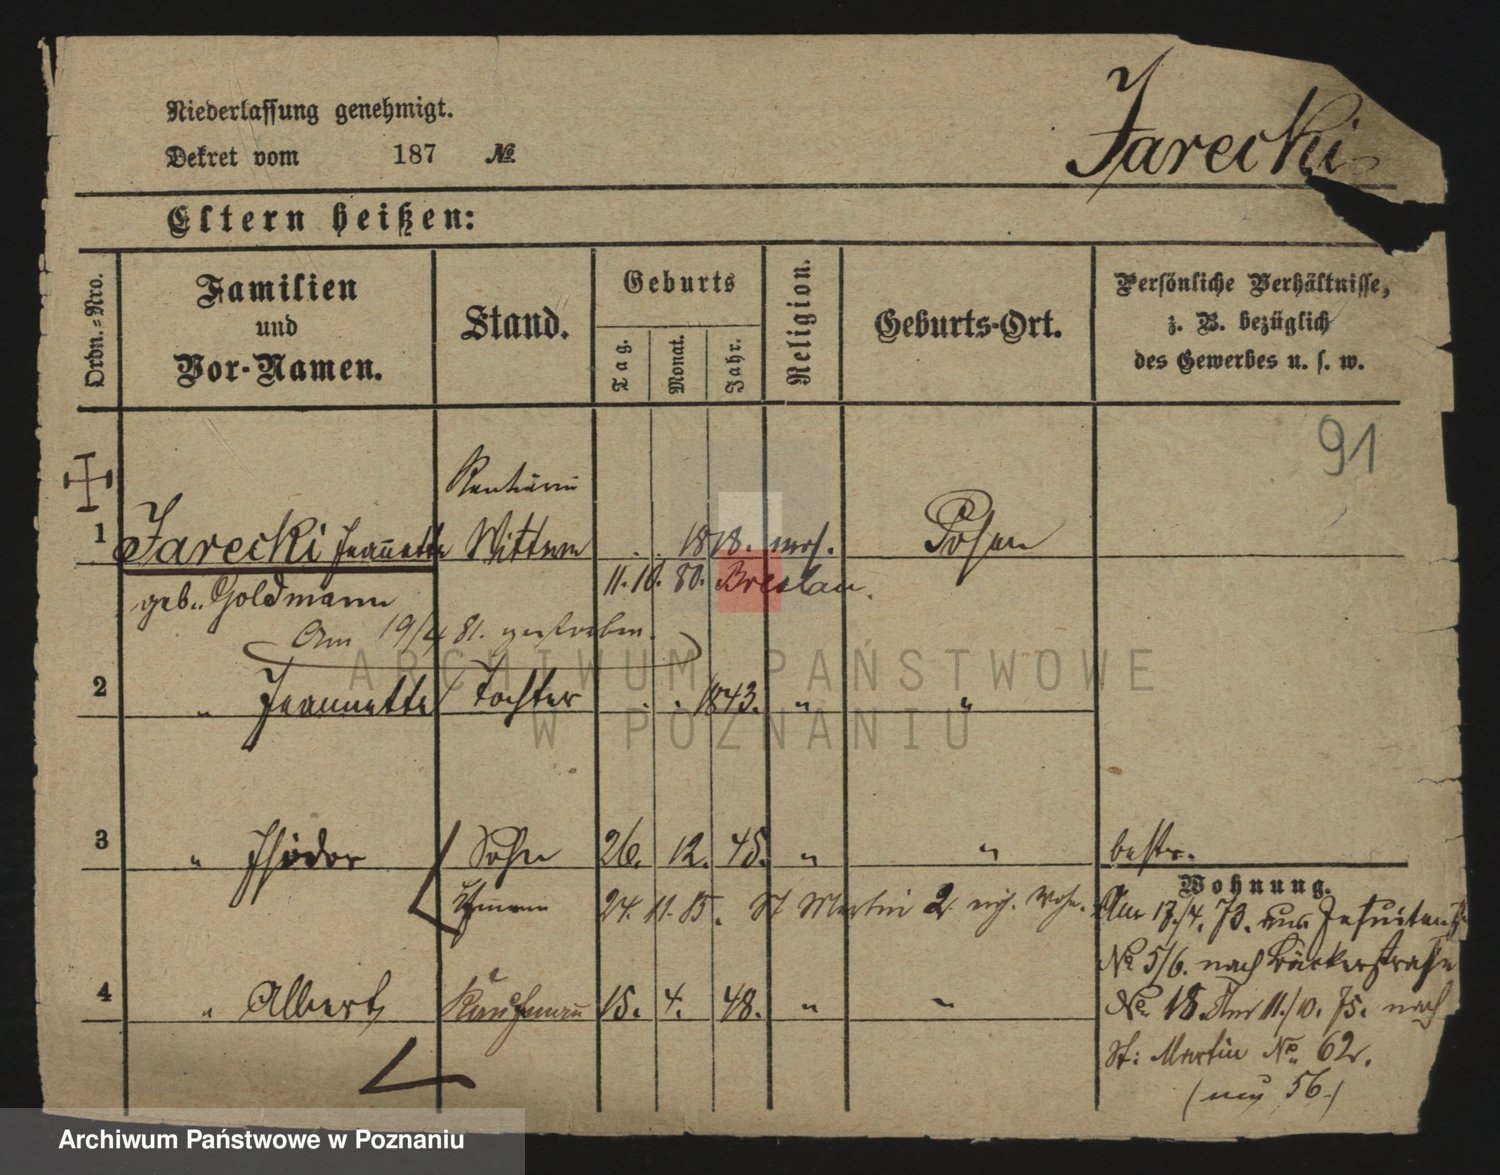 Niederlassung genehmigt.
Dekret vom 187 №
Jarecki
Eltern heißen:
Ordn.=Nro.
Familien
und
Vor-Namen.
Stand.
Geburts
Tag.
Monat.
Jahr.
Religion.
Geburts-Ort.
Persönliche Verhältnisse,
z. B. bezüglich
des Gewerbes u. s. w.
91
1 Jarecki Jeannette Wittwe . . 1818. mos. Posen
geb. Goldmann
11. 10. 80. Breslau.
Am 19/4 81. gestorben.
2 " Jeannette Tochter . . 1843. " "
3 " Isidor Sohn 26. 12. 45. " "
Wohnung.
24. 11. 85. St Martin 2
Am 17./4. 73. aus Jesuitenstr
No 5/6. nach Bäckerstraße
4 " Albert Kaufmann 15. 4. 48. " "
No 18. Am 11./10. 75. nach
St: Martin No. 62.
56.)
ARCHIWUM PAŃSTWOWE
W POZNANIU
Archiwum Państwowe w Poznaniu